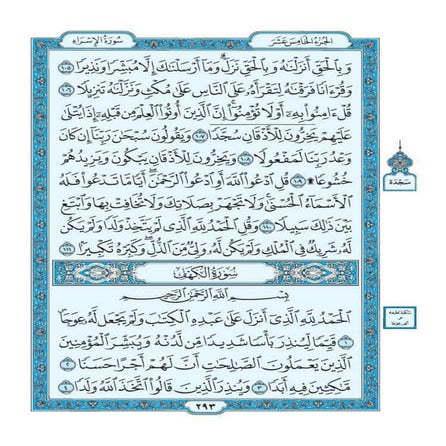 سُورَةُ الإِسْرَاءِ
الجُزْءُ الخَامِسَ عَشَرَ
وَبِالْحَقِّ أَنزَلْنَاهُ وَبِالْحَقِّ نَزَلَ وَمَا أَرْسَلْنَاكَ إِلَّا مُبَشِّرًا وَنَذِيرًا ١٠٥
وَقُرْءَانًا فَرَقْنَاهُ لِتَقْرَأَهُ عَلَى النَّاسِ عَلَى مُكْثٍ وَنَزَّلْنَاهُ تَنزِيلًا ١٠٦
قُلْ ءَامِنُوا بِهِ أَوْ لَا تُؤْمِنُوا إِنَّ الَّذِينَ أُوتُوا الْعِلْمَ مِن قَبْلِهِ إِذَا يُتْلَى
عَلَيْهِمْ يَخِرُّونَ لِلْأَذْقَانِ سُجَّدًا ١٠٧ وَيَقُولُونَ سُبْحَانَ رَبِّنَا إِن كَانَ
وَعْدُ رَبِّنَا لَمَفْعُولًا ١٠٨ وَيَخِرُّونَ لِلْأَذْقَانِ يَبْكُونَ وَيَزِيدُهُمْ
خُشُوعًا ۩ ١٠٩ قُلِ ادْعُوا اللَّهَ أَوِ ادْعُوا الرَّحْمَٰنَ أَيًّا مَّا تَدْعُوا فَلَهُ
الْأَسْمَاءُ الْحُسْنَى وَلَا تَجْهَرْ بِصَلَاتِكَ وَلَا تُخَافِتْ بِهَا وَابْتَغِ
بَيْنَ ذَٰلِكَ سَبِيلًا ١١٠ وَقُلِ الْحَمْدُ لِلَّهِ الَّذِي لَمْ يَتَّخِذْ وَلَدًا وَلَمْ يَكُن
لَّهُ شَرِيكٌ فِي الْمُلْكِ وَلَمْ يَكُن لَّهُ وَلِيٌّ مِّنَ الذُّلِّ وَكَبِّرْهُ تَكْبِيرًا ١١١
سُورَةُ الكَهْفِ
بِسْمِ اللَّهِ الرَّحْمَٰنِ الرَّحِيمِ
الْحَمْدُ لِلَّهِ الَّذِي أَنزَلَ عَلَى عَبْدِهِ الْكِتَابَ وَلَمْ يَجْعَل لَّهُ عِوَجًا
١ قَيِّمًا لِّيُنذِرَ بَأْسًا شَدِيدًا مِّن لَّدُنْهُ وَيُبَشِّرَ الْمُؤْمِنِينَ
الَّذِينَ يَعْمَلُونَ الصَّالِحَاتِ أَنَّ لَهُمْ أَجْرًا حَسَنًا ٢
مَّاكِثِينَ فِيهِ أَبَدًا ٣ وَيُنذِرَ الَّذِينَ قَالُوا اتَّخَذَ اللَّهُ وَلَدًا ٤
٢٩٣
سَجْدَة